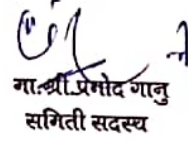 मा.श्री.प्रमोद गानु
समिती सदस्य